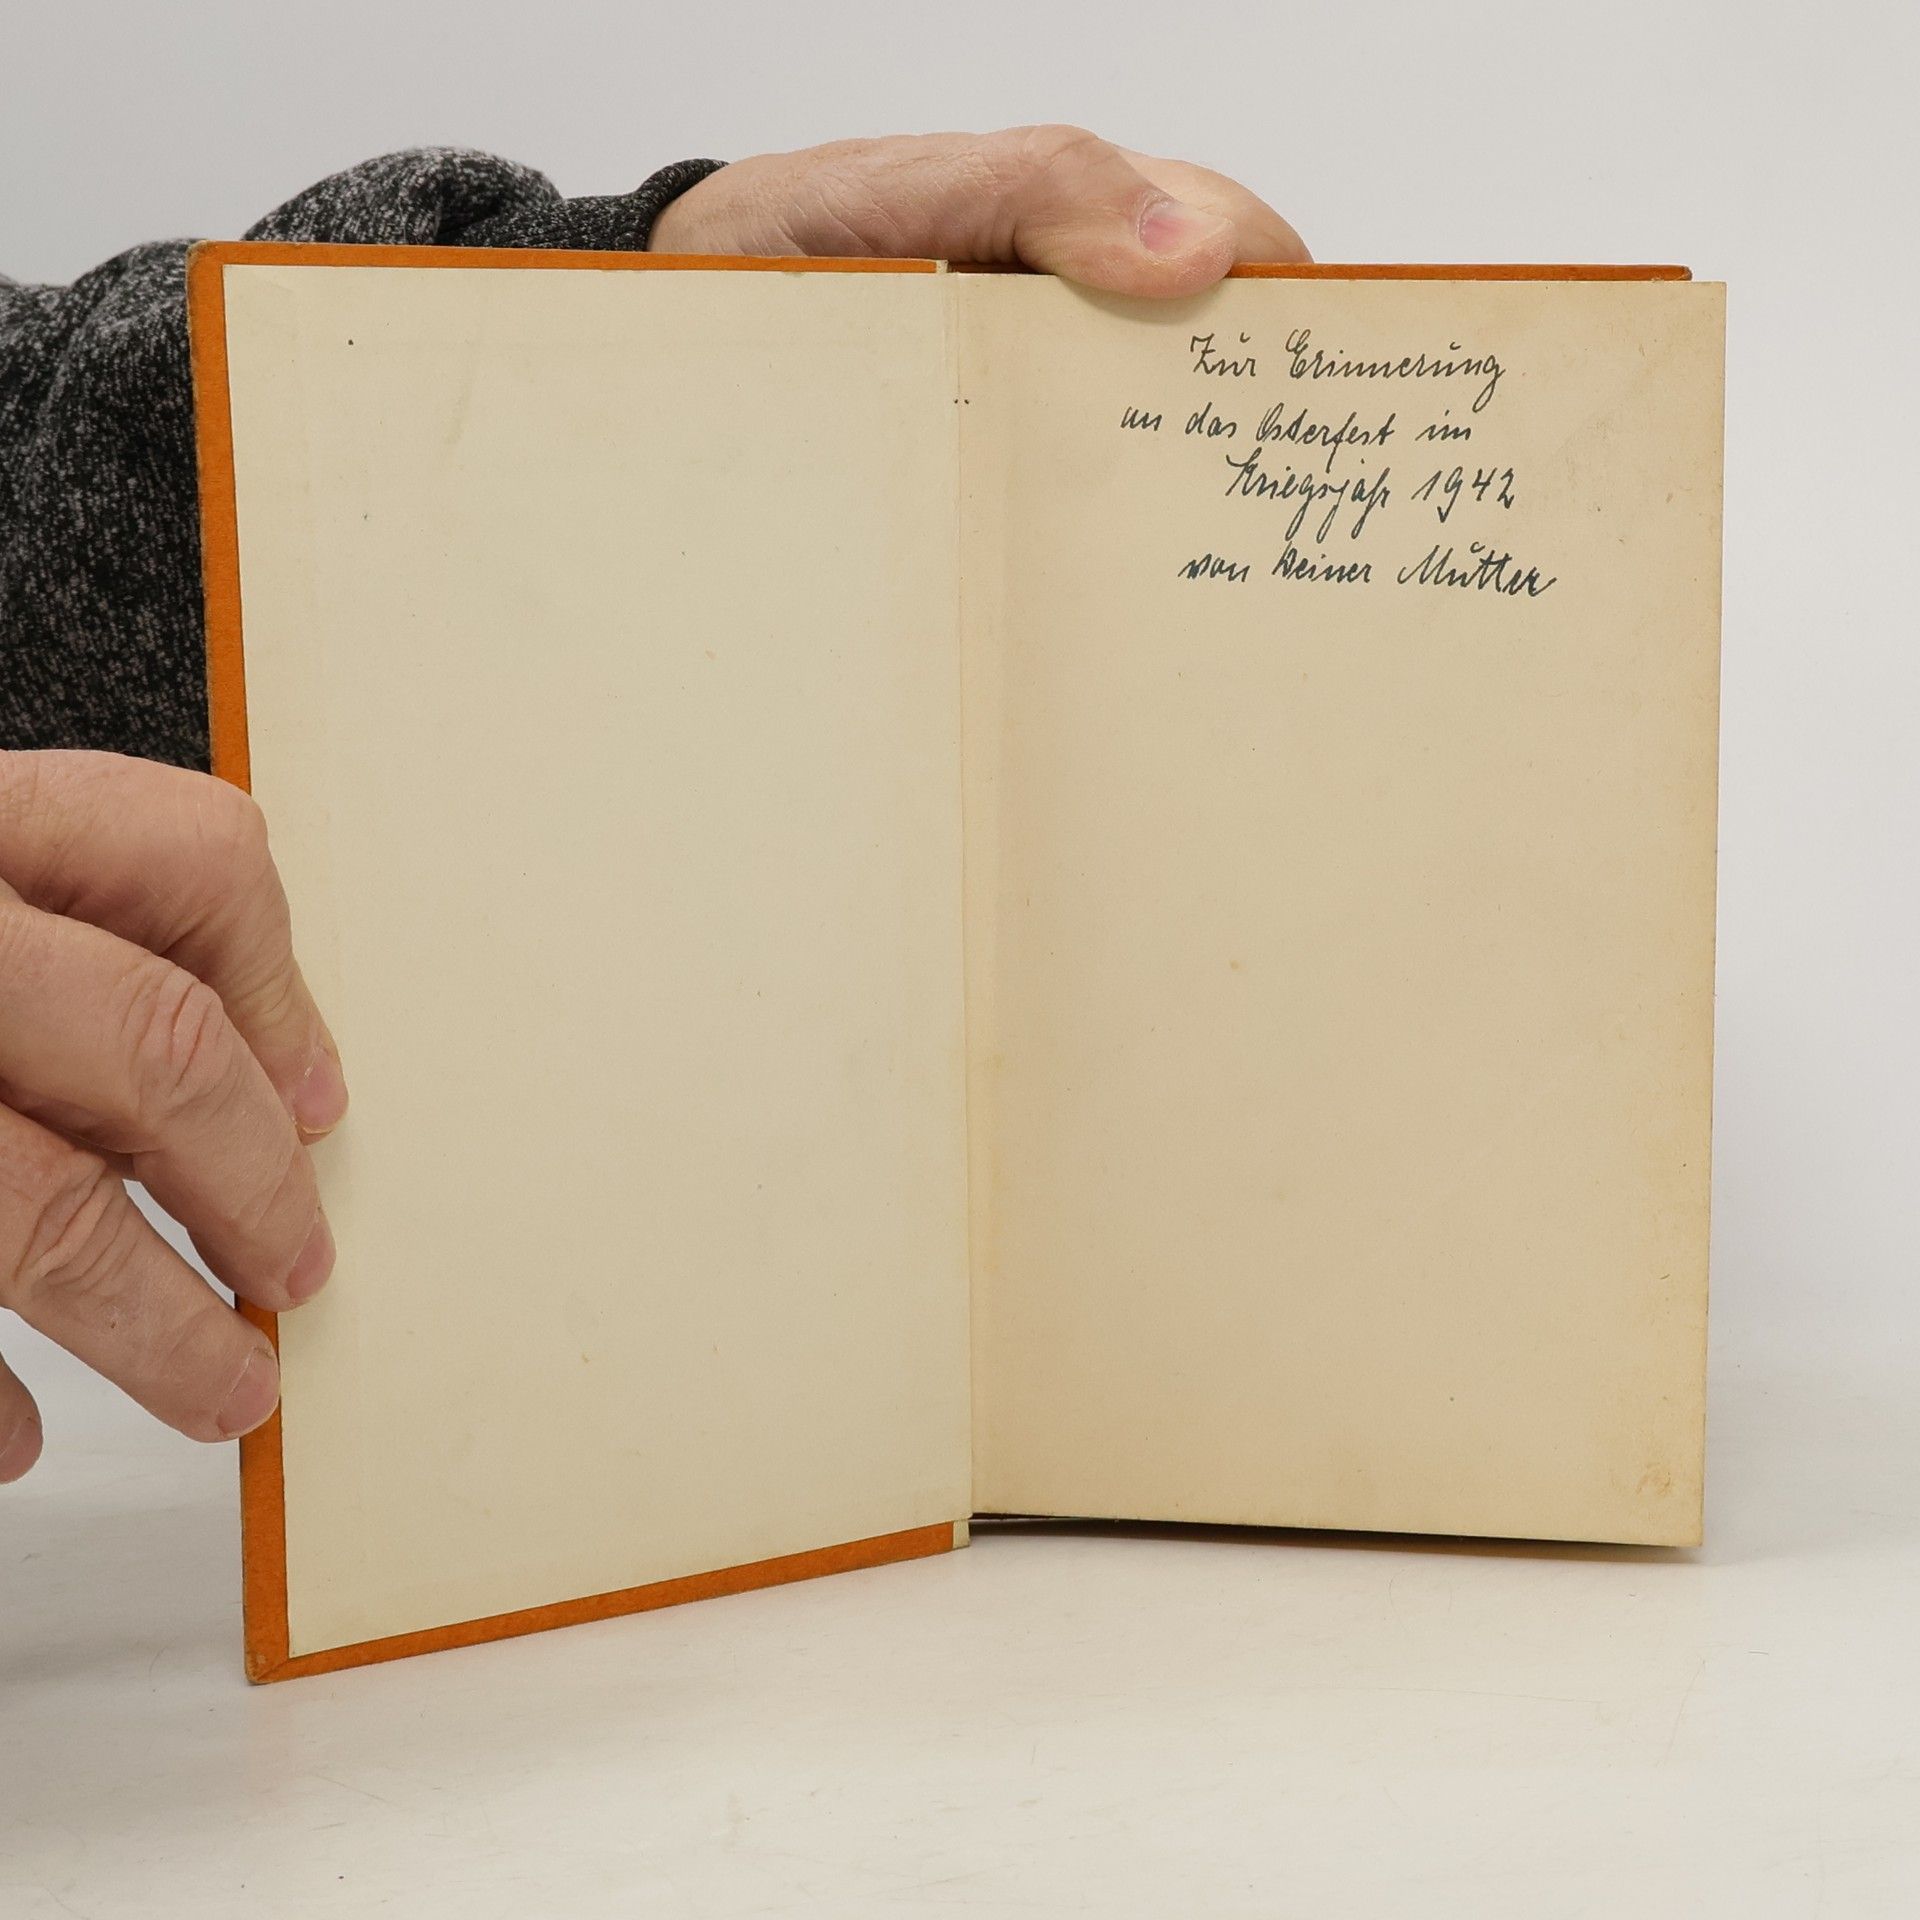 Zur Erinnerung
an das Osterfest im
Kriegsjahr 1942
von Deiner Mutter